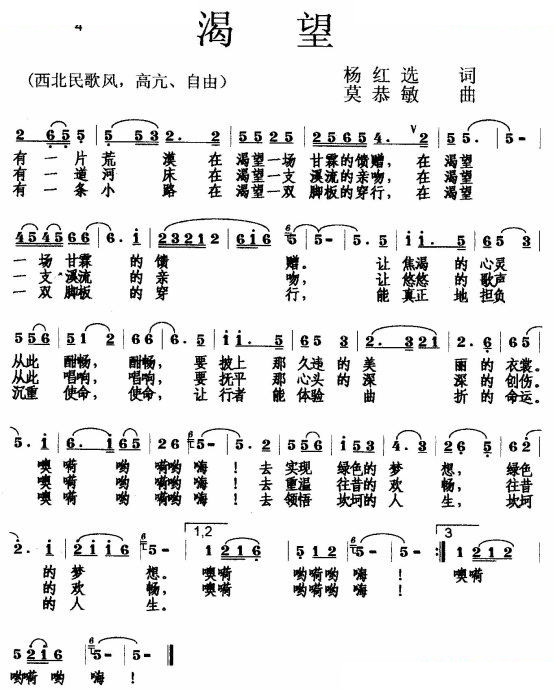 渴 望
(西北民歌风,高亢、自由)
杨红选 词
莫恭敏 曲
2 6 5 5 | 5 5 5 3 | 2. 2 | 5 5 2 5 | 2 5 6 5 2 5 | 4. 2 | 5 5. | 5 - |
有 一 片 荒 漠 在 渴望一场 甘霖的馈赠, 在 渴望
有 一 道 河 床 在 渴望一支 溪流的亲吻, 在 渴望
有 一 条 小 路 在 渴望一双 脚板的穿行, 在 渴望
一场甘霖 的馈 赠。 让焦渴 的心灵
一支溪流 的亲 吻, 让悠悠 的歌声
一双脚板 的穿 行, 能真正 地担负
从此 酣畅, 酣畅, 要披上 那久违的美 丽的衣裳。
从此 唱响, 唱响, 要抚平 那心头的深 深的创伤。
沉重 使命, 使命, 让行者 能体验 曲 折的命运。
噢嗬 哟 嗬哟 嗨! 去 实现 绿色的梦 想, 绿色
噢嗬 哟 嗬哟 嗨! 去 重温 往昔的欢 畅, 往昔
噢嗬 哟 嗬哟 嗨! 去 领悟 坎坷的人 生, 坎坷
1,2
3
的梦 想。 噢嗬 哟嗬哟 嗨! 噢嗬
的欢 畅, 噢嗬 哟嗬哟 嗨!
的人 生。
5 2 1 6 | 5 - | 5 - ‖
哟嗬 哟 嗨!